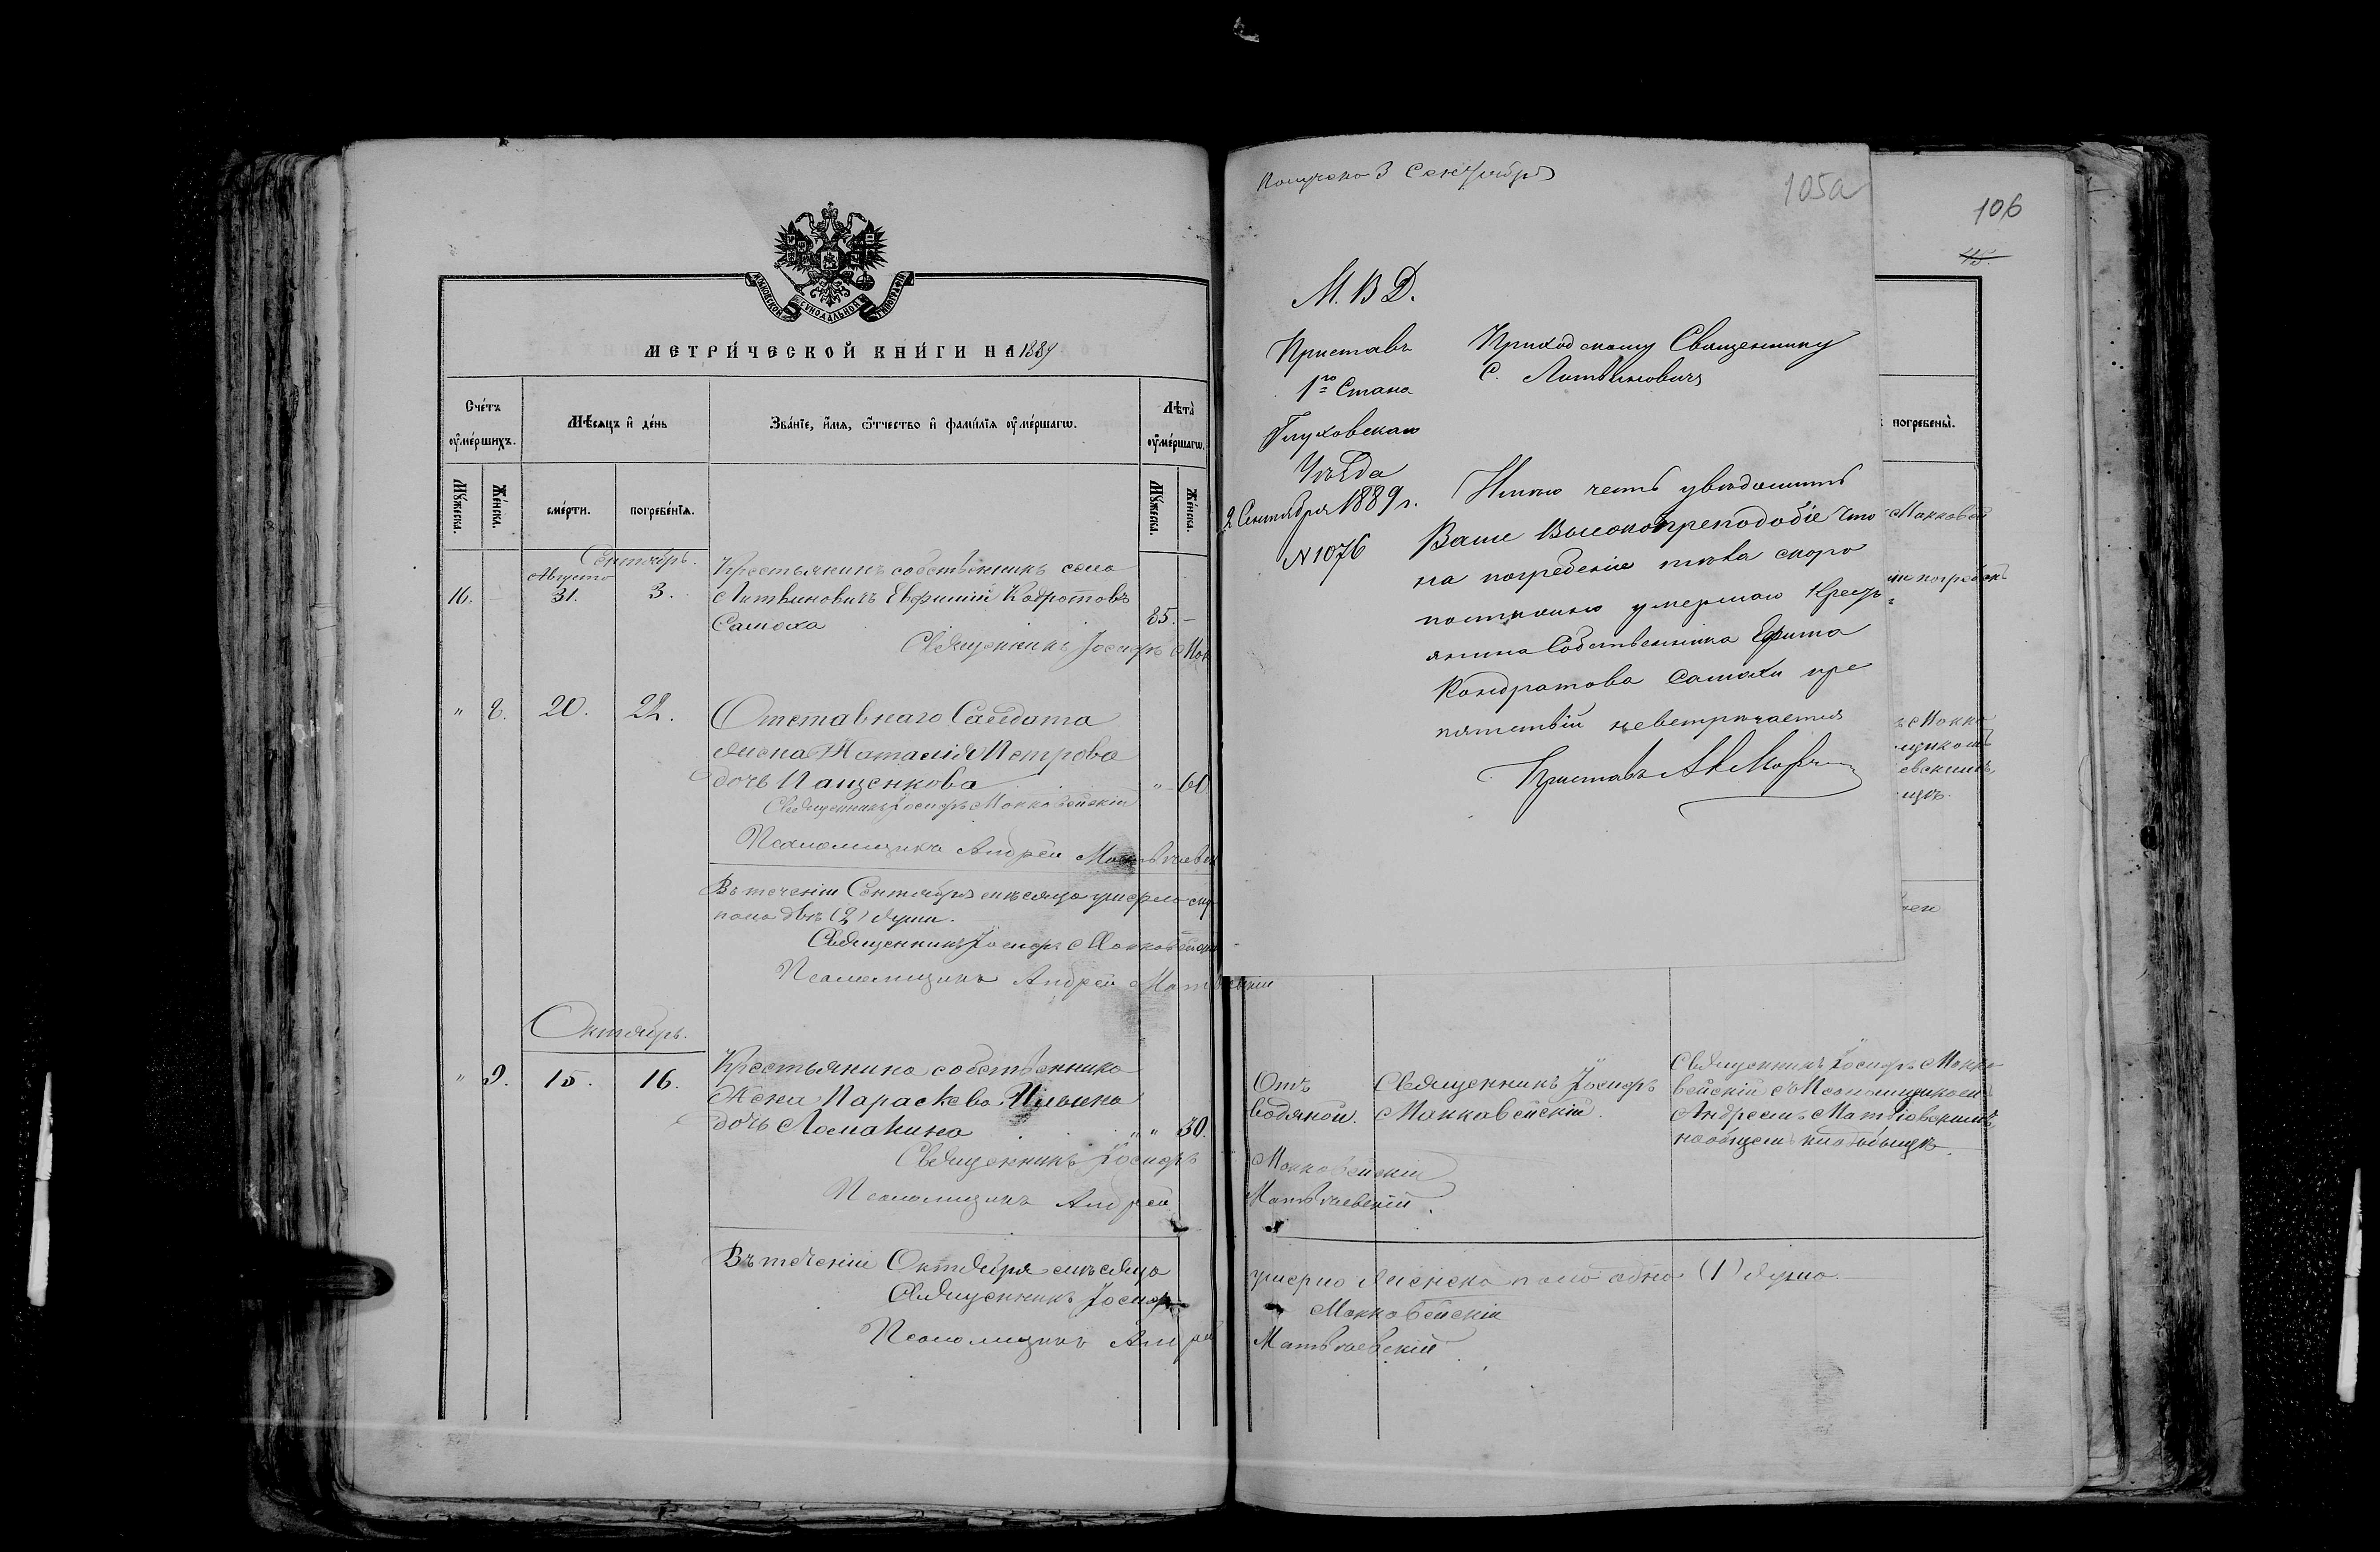 МОСКОВСКОЙ СѴНОДАЛЬНОЙ ТИПОГРАФІИ
МЕТРИ́ЧЕСКОЙ КНИ́ГИ НА 1889
Сче́тъ ᲂумéршихъ.
Мѣ́сяцъ и҆ де́нь
Зва́нїе, и҆́мя, ѻ҆́тчество и҆ фами́лїя ᲂу҆ме́ршагѡ.
Лѣта̀ ᲂу҆ме́ршагѡ.
Мꙋ́жеска.
Же́нска.
сме́рти.
погребе́нїя.
Мꙋ́жеска.
Же́нска.
Сентябрь.
Августа
16.
31.
3.
Крестьянинъ собственникъ села
Литвиновичъ Евфимій Кодротовъ
Самоха
35.
Священникъ Іосифъ Мак
" 8. 20. 22.
Отставнаго Салдата
жена Наталія Петрова
дочь Пащенкова
" 60
Священникъ Іосифъ Маккавейскій
Псаломщикъ Андрей
Въ теченіи Сентября мѣсяца умерло
пола двѣ (2) души.
Священникъ Іосифъ Маккавейскій
Псаломщикъ Андрей
Октябрь.
" 9. 15. 16.
Крестьянина собственника
жена Параскева
дочь Ломакина
" " 30.
Священникъ Іосифъ
Псаломщикъ Андрей
Въ теченіи Октября мѣсяца
Священникъ Іосифъ
Псаломщикъ Андрей
Получено 3 Сентября
105а
106
М. В. Д.
Приставъ
1го Стана
Глуховскаго
Уѣзда
2 Сентября 1889 г.
N 1076
Приходскому Священнику
С. Литвиновичъ
Имѣю честь увѣдомить
Ваше Высокопреподобіе что
на погребеніе тѣла скоро
постижно умершаго Кресть
янина Собственника Ефима
Кондратова Самохи пре
пятствій невстрѣчается
Приставъ
погребены̀.
Маккавей
погребенъ
Макко
Отъ
водяной.
Священникъ Іосифъ
Маккавейскій.
Священникъ Іосифъ Макка
вейскій съ Псаломщикомъ
Андреемъ
на общемъ кладбищѣ.
Маккавейскій
умерло женска пола одна (1) душа.
Маккавейскій